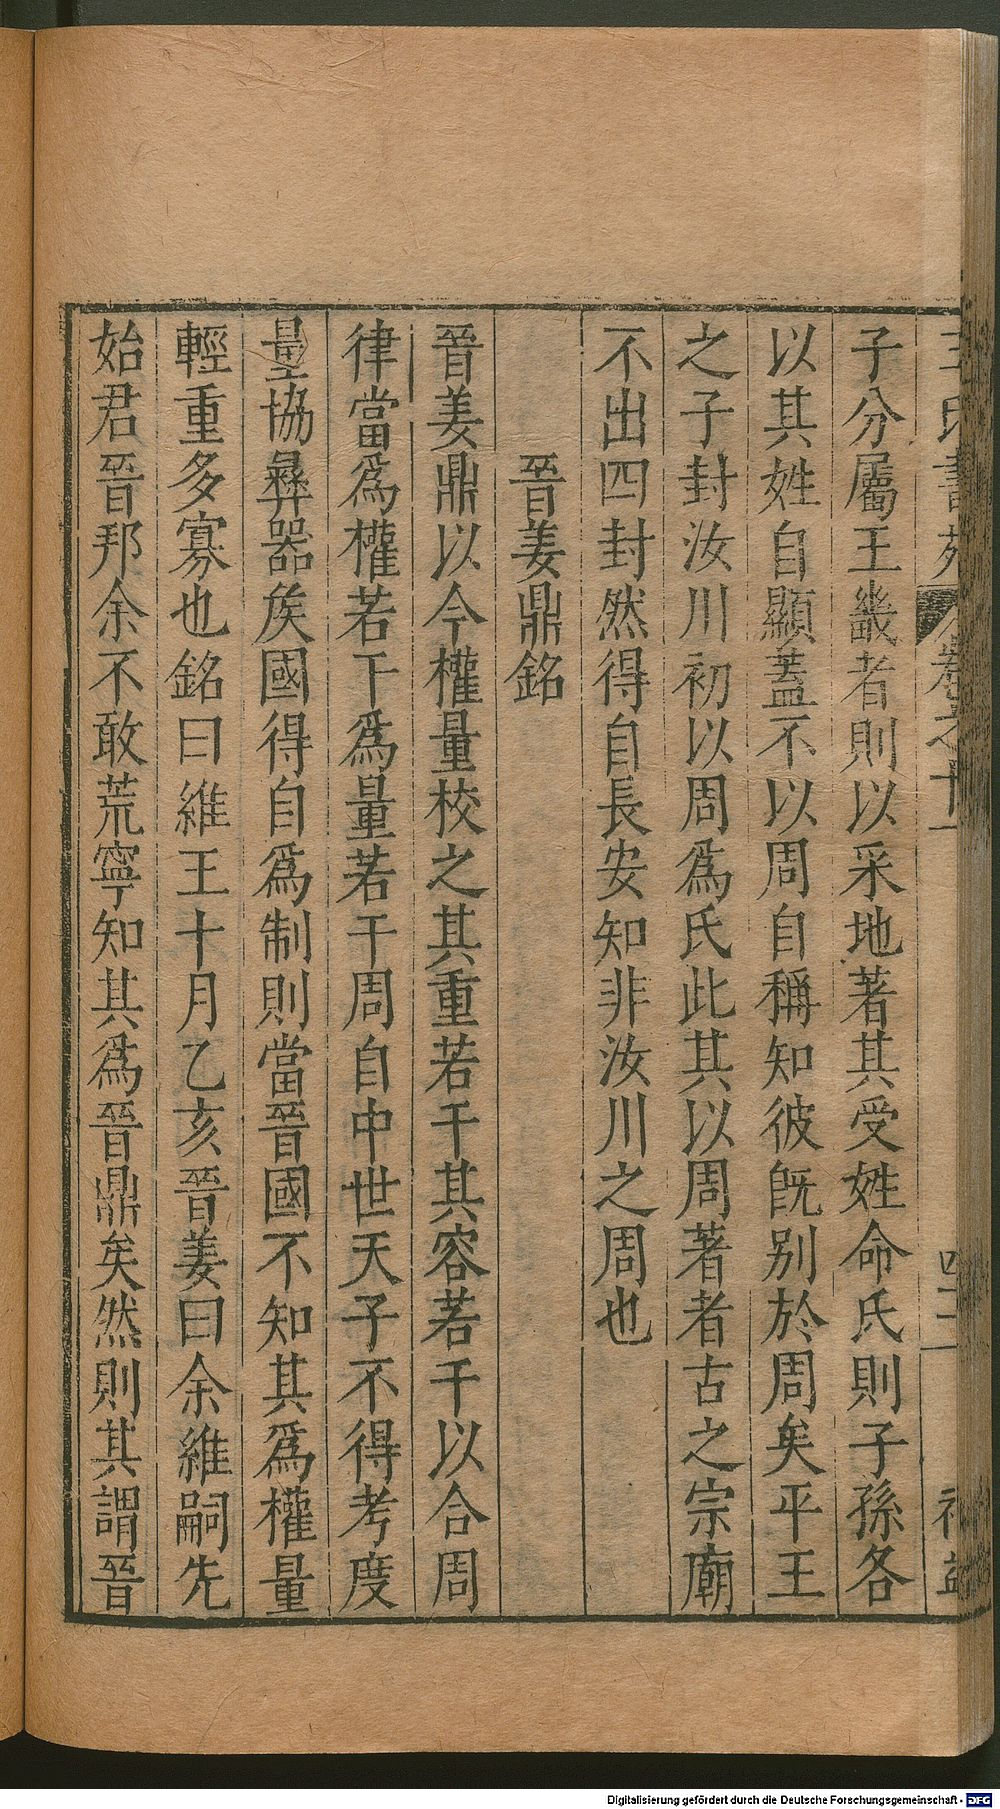 王氏書苑 卷之十 四二
子分屬王畿者則以采地著其受姓命氏則子孫各
以其姓自顯蓋不以周自稱知彼旣別於周矣平王
之子封汝川初以周爲氏此其以周著者古之宗廟
不出四封然得自長安知非汝川之周也
晉姜鼎銘
晉姜鼎以今權量校之其重若干其容若干以合周
律當爲權若干爲量若干周自中世天子不得考度
量協彝器矦國得自爲制則當晉國不知其爲權量
輕重多寡也銘曰維王十月乙亥晉姜曰余維嗣先
始君晉邦余不敢荒寧知其爲晉鼎矣然則其謂晉
Digitalisierung gefördert durch die Deutsche Forschungsgemeinschaft - DFG